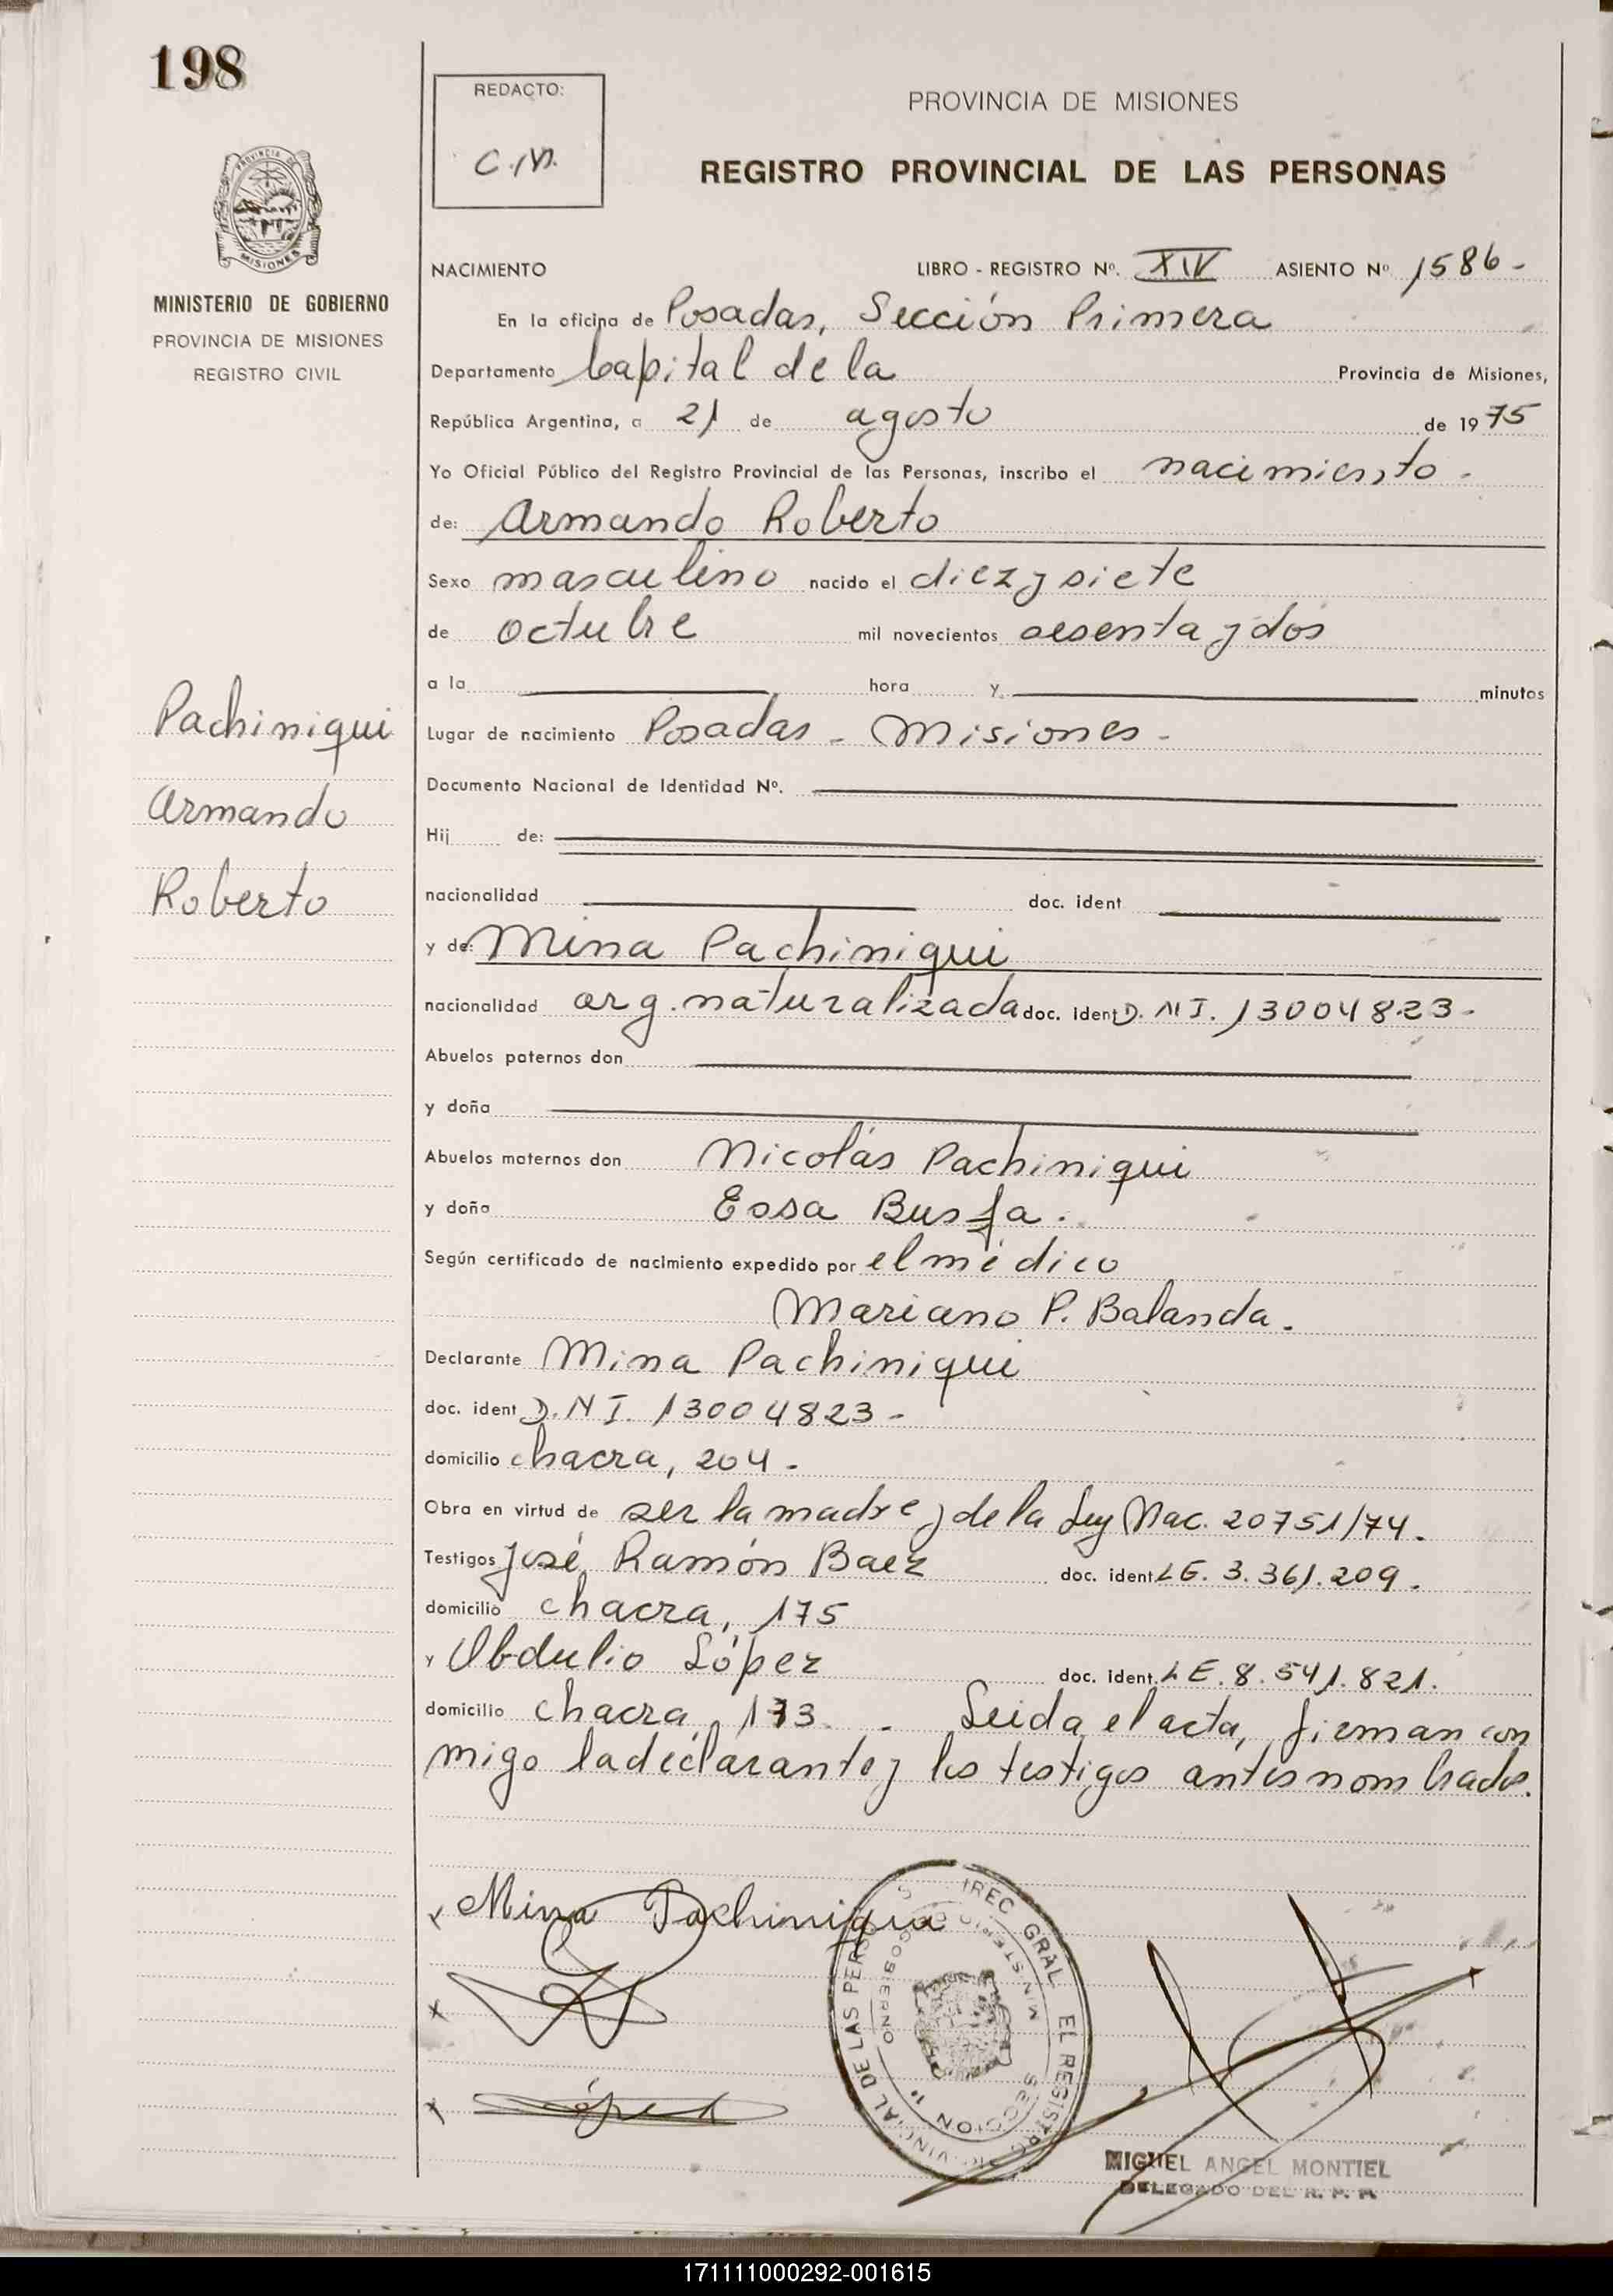 198
REDACTO:
C.M.
PROVINCIA DE MISIONES
REGISTRO PROVINCIAL DE LAS PERSONAS
PROVINCIA DE
MISIONES
MINISTERIO DE GOBIERNO
PROVINCIA DE MISIONES
REGISTRO CIVIL
NACIMIENTO LIBRO - REGISTRO Nº. XIV ASIENTO Nº 1586-
En la oficina de Posadas, Sección Primera
Departamento Capital de la Provincia de Misiones,
República Argentina, a 21 de agosto de 1975
Yo Oficial Público del Registro Provincial de las Personas, inscribo el nacimiento -
de: Armando Roberto
Sexo masculino nacido el diez y siete
de octubre mil novecientos sesenta y dos
a la hora y minutos
Pachiniqui
Armando
Roberto
Lugar de nacimiento Posadas - Misiones -
Documento Nacional de Identidad Nº.
Hij de:
nacionalidad doc. ident
y de: Mina Pachiniqui
nacionalidad arg. naturalizada doc. ident D.N.I. 13004823-
Abuelos paternos don
y doña
Abuelos maternos don Nicolás Pachiniqui
y doña Eosa
Según certificado de nacimiento expedido por el médico
Mariano P. Balanda.
Declarante Mina Pachiniqui
doc. ident D.N.I. 13004823-
domicilio chacra, 204-
Obra en virtud de ser la madre y de la Ley Nac. 20751/74.
Testigos José Ramón Baez doc. ident LE. 3.361.209.
domicilio chacra, 175
y Obdulio López doc. ident. LE. 8.541.821.
domicilio chacra, 173. - Leida el acta, firman con
migo la declarante y los testigos antes nombrados.
Mina Pachiniqui
DIREC GRAL EL REGISTRO PROVINCIAL DE LAS PERSO
MINISTERIO GOBIERNO
SECCION 1ª
López
MIGUEL ANGEL MONTIEL
DELEGADO DEL R. P. P.
171111000292-001615